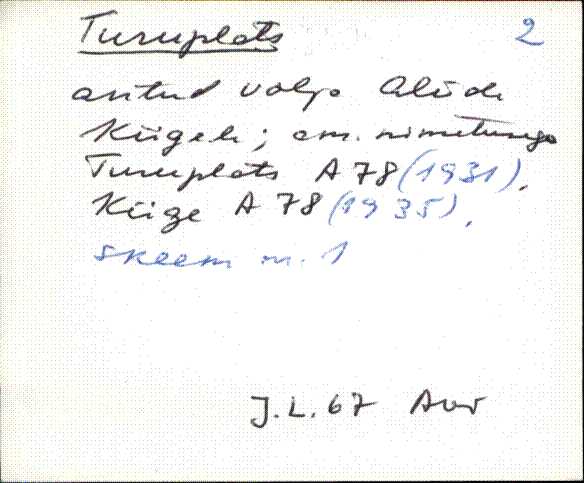 Turuplats 2
antud valja Alide
Kügele; em. nimetusega
Turuplats A 78 (1931),
Küige A 78 (1935),
skeem nr. 1
J.L. 67 Aur